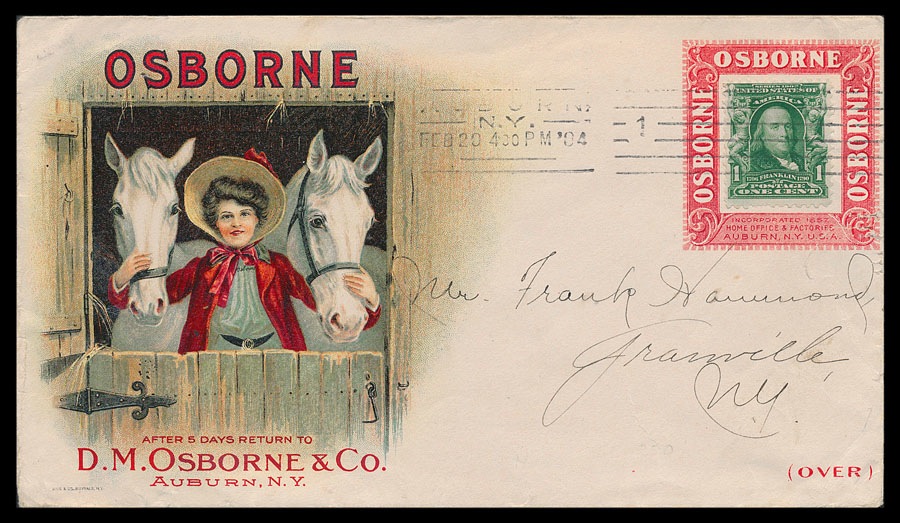 OSBORNE
AUBURN,
N.Y.
FEB 20 4 30 PM '04
1
OSBORNE
OSBORNE
OSBORNE
SERIES 1902
UNITED STATES OF
AMERICA
1 1706 FRANKLIN 1790 1
POSTAGE
ONE CENT
INCORPORATED 1857
HOME OFFICE & FACTORIES
AUBURN, N.Y. U.S.A.
Mr. Frank Hammond,
Granville,
NY
AFTER 5 DAYS RETURN TO
D.M. OSBORNE & CO.
AUBURN, N.Y.
(OVER)